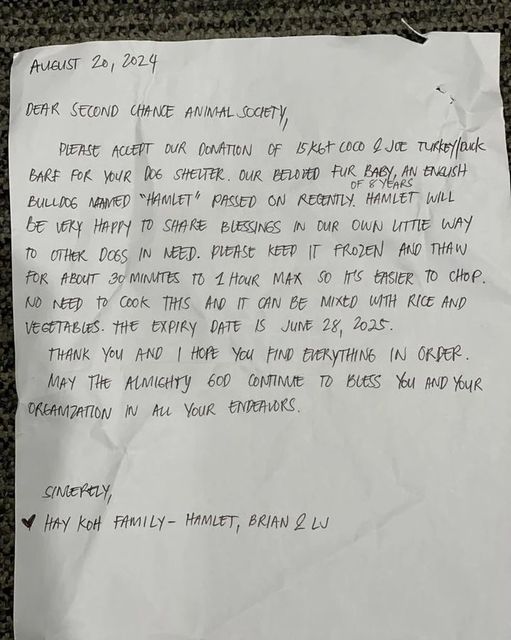 AUGUST 20, 2024
DEAR SECOND CHANCE ANIMAL SOCIETY,
PLEASE ACCEPT OUR DONATION OF 15 KG+ COCO & JOE TURKEY/DUCK
BARF FOR YOUR DOG SHELTER. OUR BELOVED FUR BABY, AN ENGLISH
OF 8 YEARS
BULLDOG NAMED "HAMLET" PASSED ON RECENTLY. HAMLET WILL
BE VERY HAPPY TO SHARE BLESSINGS IN OUR OWN LITTLE WAY
TO OTHER DOGS IN NEED. PLEASE KEEP IT FROZEN AND THAW
FOR ABOUT 30 MINUTES TO 1 HOUR MAX SO IT'S EASIER TO CHOP.
NO NEED TO COOK THIS AND IT CAN BE MIXED WITH RICE AND
VEGETABLES. THE EXPIRY DATE IS JUNE 28, 2025.
THANK YOU AND I HOPE YOU FIND EVERYTHING IN ORDER.
MAY THE ALMIGHTY GOD CONTINUE TO BLESS YOU AND YOUR
ORGANIZATION IN ALL YOUR ENDEAVORS.
SINCERELY,
♥ HAY KOH FAMILY – HAMLET, BRIAN & LJ